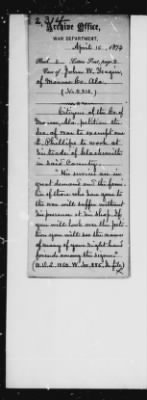 2,314
Archive Office,
WAR DEPARTMENT,
April 10, 1874
Case of John W.
of Monroe Co. Ala.
(No. 2,314.)
Citizens of the Co. of
Monroe, Ala. petition the
Sec. of war to exempt one
E. Phillips to work at
his trade of blacksmith
in said County.
"His services are in
great demand and the fami-
lies of those who have gone to
the war will suffer without
his presence at his shop. If
you will look over this peti-
tion you will see the names
of many of your right hand
friends among the signers."